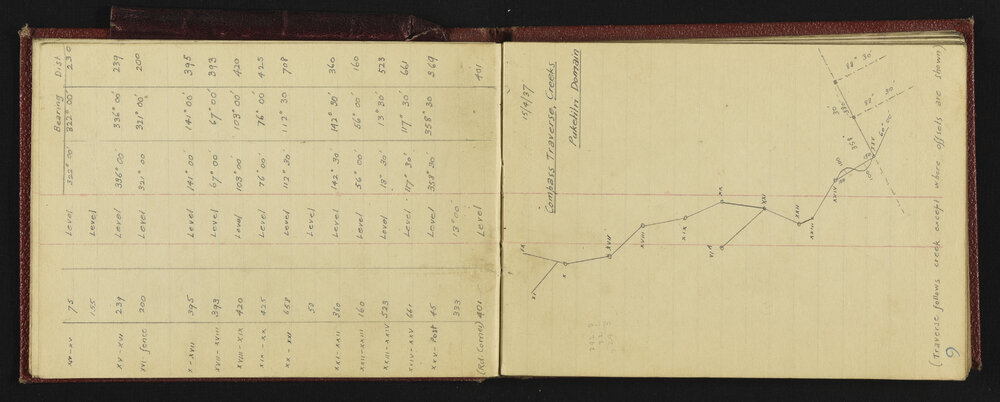 Bearing Dist.
XIV-XV 75 Level 322° 00' 322° 00' 230
155 Level
XV-XVI 239 Level 336° 00' 336° 00' 239
XVI-fence 200 Level 321° 00 321° 00' 200
X-XVII 395 Level 141° 00' 141° 00' 395
XVII-XVIII 393 Level 67° 00' 67° 00' 393
XVIII-XIX 420 Level 103° 00' 103° 00' 420
XIX-XX 425 Level 76° 00 76° 00' 425
XX-XXI 658 Level 112° 30' 112° 30 708
50 Level
XXI-XXII 360 Level 142° 30' 142° 30' 360
XXII-XXIII 160 Level 56° 00 56° 00' 160
XXIII-XXIV 523 Level 13° 30' 13° 30' 523
XXIV-XXV 661 Level 117° 30' 117° 30' 661
XXV-Post 45 Level 358° 30' 358° 30 369
333 13° 00
(Rd. Corner) 401 Level 401
15/4/37
Compass Traverse, Creeks
Pukehiln Domain
IX
XI
X
XVII
XVIII
XIX
XX
XXI
XXII
XXIII
XXIV
XXV
88° 30'
82° 30'
60° 00'
358° 30'
(Traverse follows creek except where offsets are shown)
9